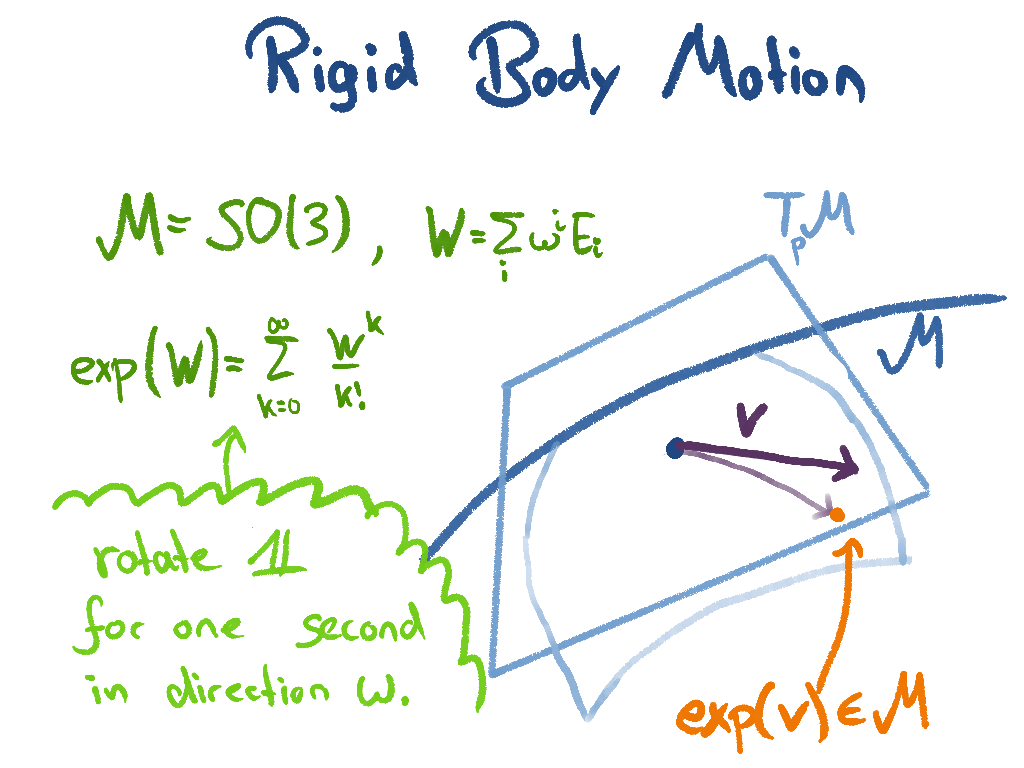 Rigid Body Motion
M = SO(3), W = ∑_i ω^i E_i
exp(W) = ∑_{k=0}^{∞} W^k / k!
rotate 𝟙
for one second
in direction ω.
T_p M
M
v
exp(v) ∈ M